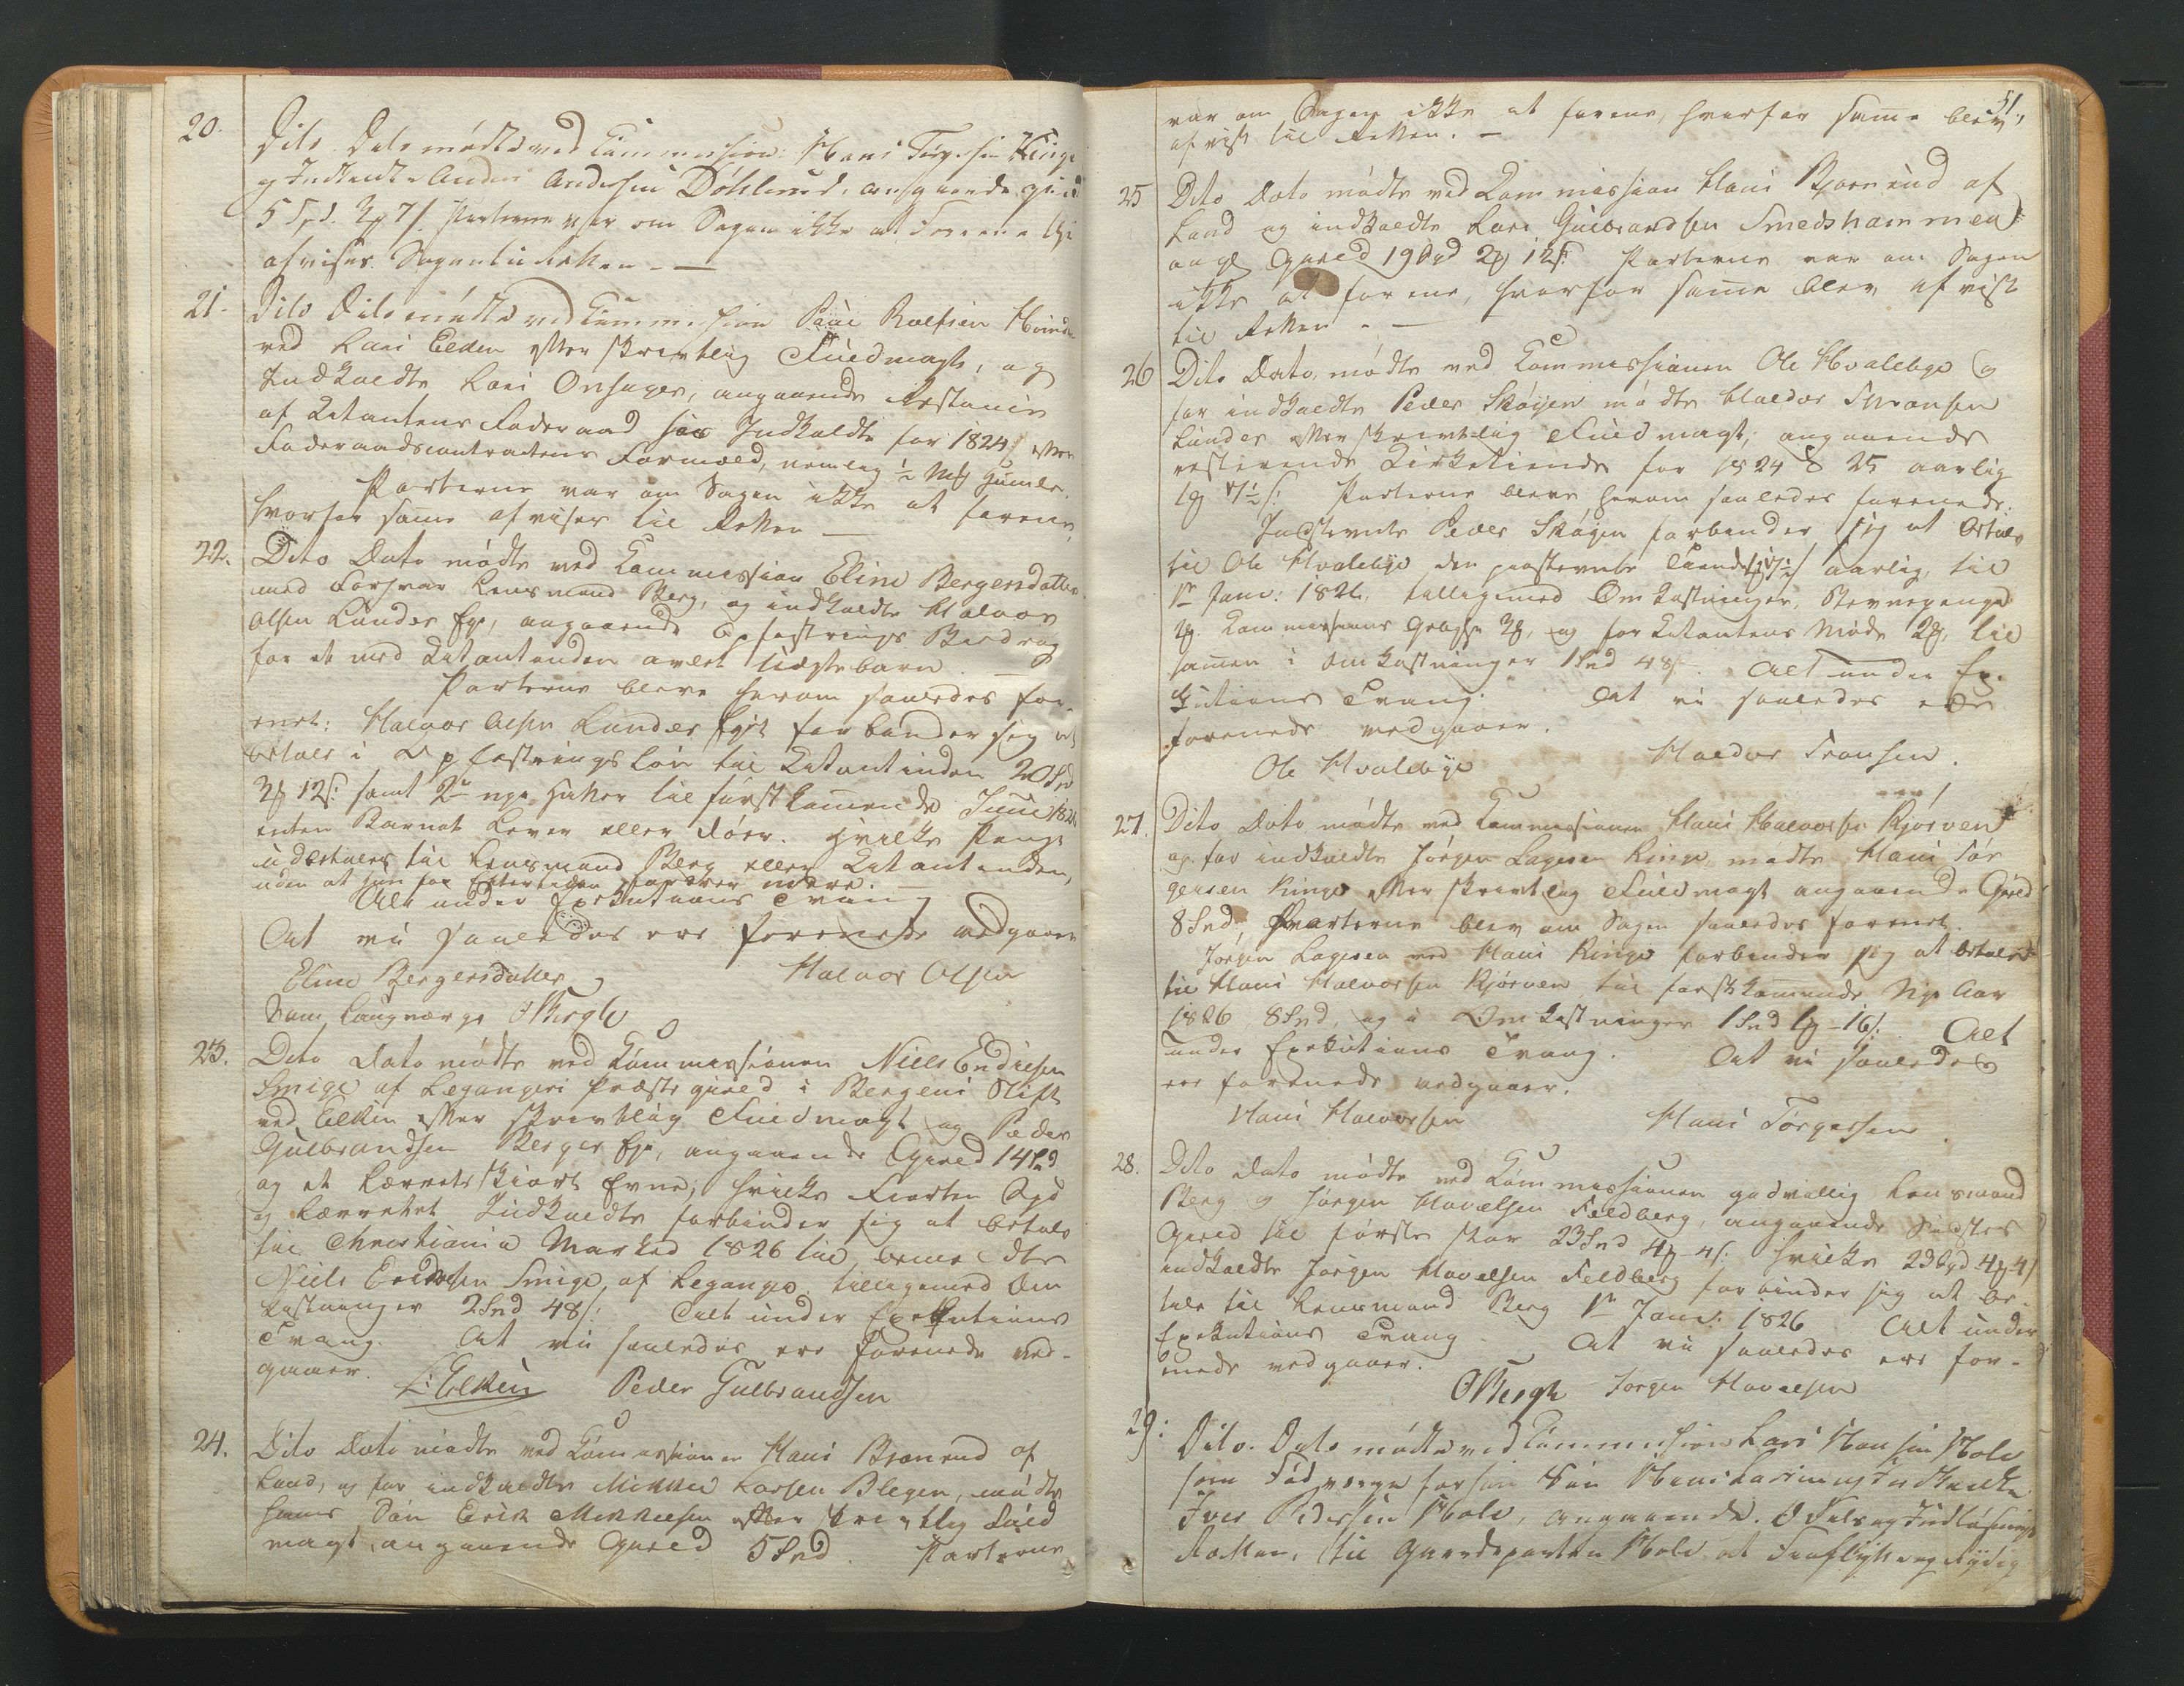 20. Dito Dato mødte ved Commission: Hans Torgersen Ringe
og Indkaldte Anders Andersen Döhlerud, angaaende Gjæld
5 Spd. 3 ƺ 7 s. Parterne var om Sagen ikke at Forene thi
afvises Sagen til Retten. —
21. Dito Dato mødte ved Commission Paul Rolfsen
ved Lars Elken efter skrivtlig Fuldmagt, og
Indkaldte Lars Onsager, angaaende Restance
af Citantens Foderaad hos Indkaldte for 1824, efter
Foderaadscontractens Formæld, nemlig ½ Humle.
Parterne var om Sagen ikke at forene,
hvorfor samme afvises til Retten —
22. Dito Dato mødte ved Commission Eline Bergersdatter
med Forsvar Lensmand Berg, og indkaldte Halvor
Olsen Lunder Eje, angaaende Opfostrings Bidrag
for et med Citantinden avlet uægte barn —
Parterne bleve herom saaledes for-
enet: Halvor Olsen Lunder Eje forbinder sig at
betale i Opfostringsløn til Citantinden 20 Spd
3 ƺ 12 s: samt til førstkommende Juul 1826
enten Barnet Lever eller døer. Hvilke Penge
udbetales til Lensmand Berg eller Citantinden,
uden at hun for Eftertiden fordrer mere. —
Alt under Exekutions Tvang
At vi saaledes ere forenede vedgaaer
Eline Bergersdatter Halvor Olsen
Som Laugværge OBergh
23. Dito Dato mødte ved Commissionen Niels Endresen
Smige af Leganger Præstegjæld i Bergens Stift
ved Elken efter skrivtlig Fuldmagt og Peder
Gulbrandsen Berger Eje, angaaende Gjæld 14 Spd
og et Lærrets skjort Evne; hvilke Fiorten Spd
og Lærretet Indkaldte forbinder sig at betale
til Christiania Marked 1826 til bemeldte
Niels Endresen Smige af Leganger tilligemed Om
kostninger 2 Spd 48 s: Alt under Exekutions
Tvang. At vi saaledes ere forenede ved-
gaaer.
L: Elken Peder Gulbrandsen
24. Dito Dato mødte ved Commissionen Hans Bjonerud af
Land, og for indkaldte Mikkel Larsen Blegen, mødte
hans Søn Erik Mikkelsen efter skrivtlig Fuld
magt, angaaende Gjæld 5 Spd. Parterne
51.
var om Sagen ikke at forene, hvorfor samme blev
afvist til Retten. —
25 Dito Dato mødte ved Commission Hans Bjonerud af
Land og indkaldte Lars Gulbrandsen Smedshammer
angl Gjæld 19 Spd 2 ƺ 12 s: Parterne var om Sagen
ikke at forene, hvorfor samme blev afvist
til Retten. —
26 Dito Dato mødte ved Commissionen Ole Hvalebye og
for indkaldte Peder Skøyen mødte Haldor Transen
Lunder efter skrivtlig Fuldmagt, angaaende
resterende Kirketiende for 1824 & 25 aarlig
1 ƺ s: Parterne bleve herom saaledes forenede:
Indstevnte Peder Skøyen forbinder sig at betale
til Ole Hvalebye den paastevnte Tiende aarlig, til
1te Janr: 1826, tilligemed Omkostninger, Stevnepenge
Commissions Gebyhr 3 ƺ, og for Citantens Møde 2 ƺ, til
sammen i Omkostninger 1 Spd 48 s. Alt under Exe-
kutions Tvang. At vi saaledes ere
forenede vedgaaer.
Ole Hvalebye Haldor Transen.
27. Dito Dato mødte ved Commissionen Hans Halvorsen Kjørven
og for indkaldte Jørgen Lagesen Ringe, mødte Hans Tor
gersen Ringe efter skrivtlig Fuldmagt angaaende Gjæld
8 Spd, Parterne blev om Sagen saaledes forenet.
Jørgen Lagesen ved Hans Ringe forbinder sig at betale
til Hans Halvorsen Kjørven til førstkommende Nye Aar
1826 8 Spd, og i Omkostninger 1 Spd 1 ƺ 16 s: Alt
under Exekutions Tvang. At vi saaledes
ere forenede vedgaaer.
Hans Halvorsen Hans Torgersen.
28. Dito Dato mødte ved Commissionen godvillig Lensmand
Berg og Jørgen Havelsen Feldberg, angaaende
Gjæld til 23 Spd 4 ƺ 4 s: hvilke 23 Spd 4 ƺ 4 s
indkaldte Jørgen Havelsen Feldberg forbinder sig at be-
tale til Lensmand Berg 1te Janr: 1826 Alt under
Exekutions Tvang — At vi saaledes ere for-
enede vedgaaer.
OBergh Jørgen Havelsen
29. Dito. Dato mødte ved Commission Lars Hansen Hole
som Fødverge for sin Søn Hans Larsen og Indkaldte
Iver Pedersen Hole, angaaende. Odels og Indløsnings
Retten, til Gaardeparten Hole at Fraflytte og Rydelig